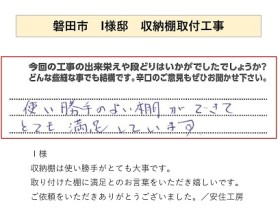 磐田市　I様邸　収納棚取付工事
今回の工事の出来栄えや段どりはいかがでしたでしょうか?
どんな些細な事でも結構です。辛口のご意見もぜひお聞かせ下さい。
使い勝手のよい棚ができて
とても満足しています
I 様
収納棚は使い勝手がとても大事です。
取り付けた棚に満足とのお言葉をいただき嬉しいです。
ご依頼をいただきありがとうございました。／安住工房